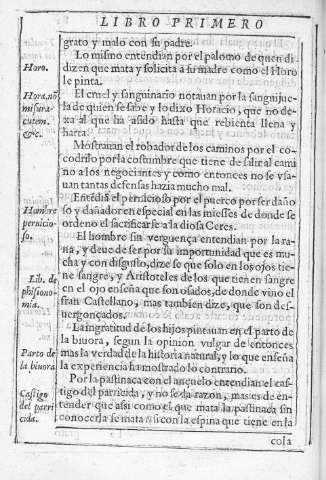 LIBRO PRIMERO
grato y malo con su padre.
Lo mismo entendian por el palomo de quen di
Horo.
dizen que mata y solicita a su madre como el Horo
le pinta.
Hora. nō
missura
cutem.
&c.
El cruel y sanguinario notauan por la sanguijue
la de quien se sabe y lo dixo Horacio, que no de-
xa al que ha asido hasta que rebienta llena y
harta.
Mostrauan el robador de los caminos por el co-
codrilo por la costumbre que tiene de salir al cami
no a los negociantes y como entonces no se vsa-
uan tantas defensas hazia mucho mal.
Hombre
pernicio-
so.
Entēdiā el pernicioso por el puerco por ser daño
so y dañador en especial en las miesses de donde se
ordeno el sacrificarse a la diosa Ceres.
El hombre sin verguença entendian por la ra-
na, y deue de ser por su importunidad que es mu-
cha y con disgusto, dize se que solo en los ojos tie-
Lib. de
phisiono-
mia.
ne sangre, y Aristoteles de los que tienen sangre
en el ojo enseña que son osados, de donde vino el
fran Castellano, mas tambien dize, que son des-
uergonçados.
La ingratitud de los hijos pintauan en el parto de
la biuora, segun la opinion vulgar de entonces
Parto de
la biuora
mas la verdad de la historia natural, y lo que enseña
la experiencia ha mostrado lo contrario.
Castigo
del parri
cida.
Por la pastinaca con el ançuelo entendian el cas-
tigo del parricida, y no se da razon, mas es de en-
tender que asi como el que mata la pastinaca sin
conocerla se mata a si con la espina que tiene en la
cola